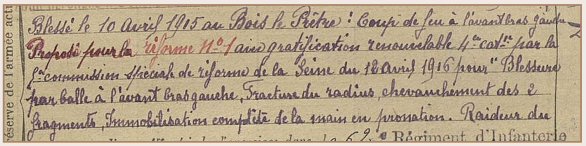 Blessé le 10 Avril 1915 au Bois le Prêtre : Coup de feu à l'avant bras gauche
Proposé pour la réforme N° 1 avec gratification renouvelable 4e catie par la
commission spéciale de réforme de la Seine du 12 Avril 1916 pour "Blessure
par balle à l'avant bras gauche, Fracture du radius, chevauchement des 2
fragments, Immobilisation complète de la main en pronation. Raideur du
69e Régiment d'Infanterie
éserve de l'armée acti